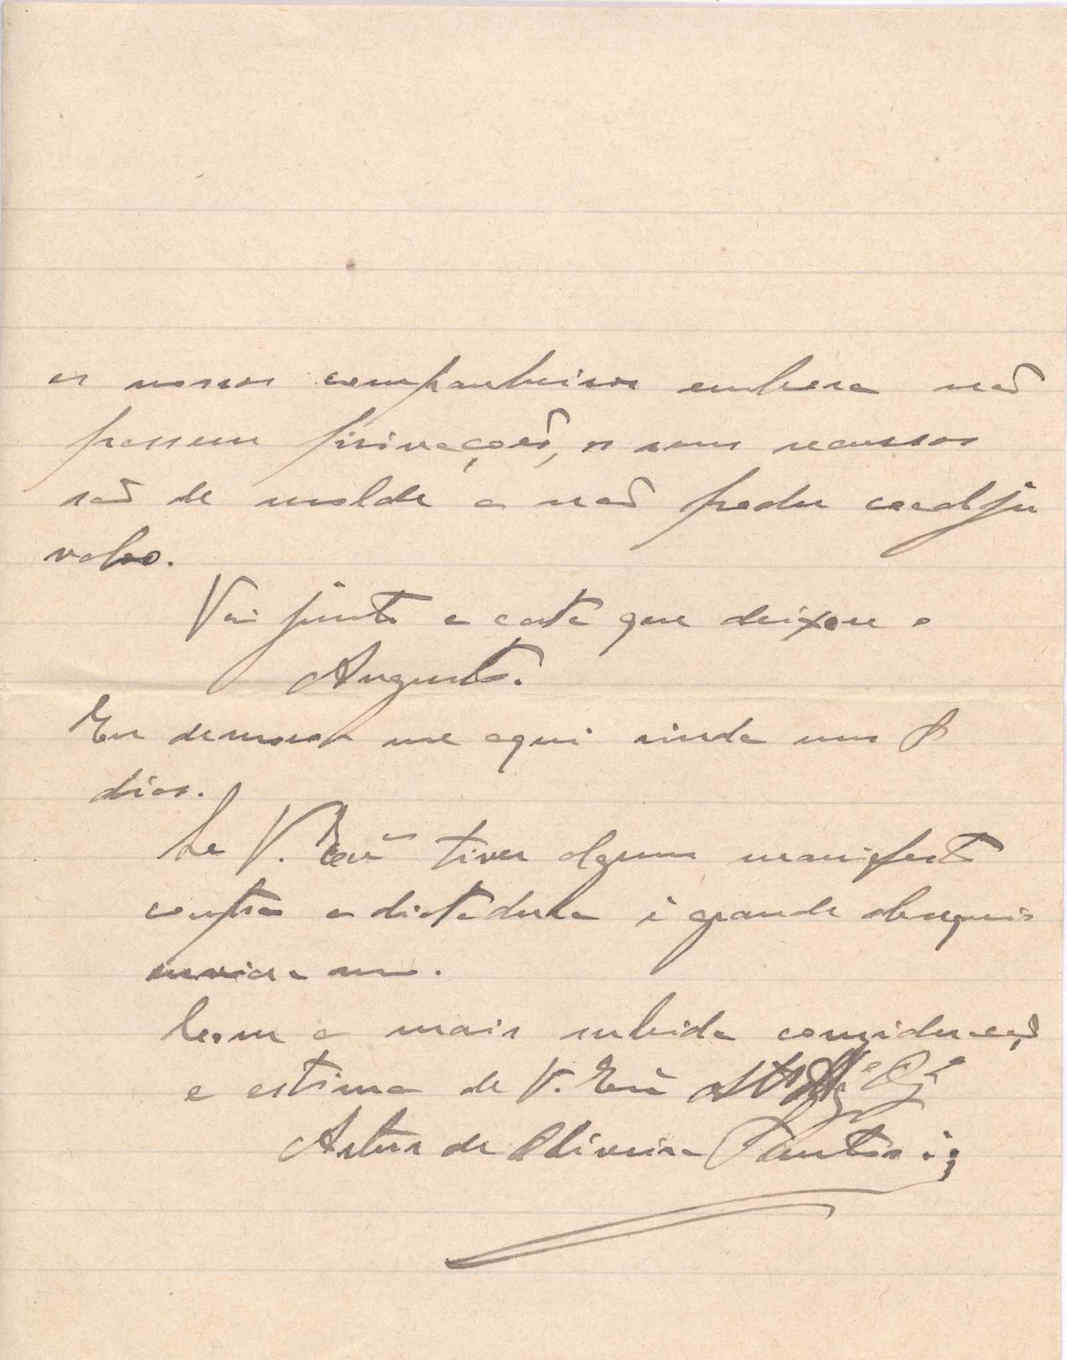 os nossos companheiros embora não
passem privações, os seus recursos
são de molde a não poder coadju
valo.
Vai junto a carta que deixou o
Augusto.
Eu demoro me aqui ainda uns 8
dias.
Se V. Exª tiver algum manifesto
contra a dictadura é grande obsequio
enviar um.
Com a mais subida consideração
e estima de V. Exª
Artur de Oliveira Santos